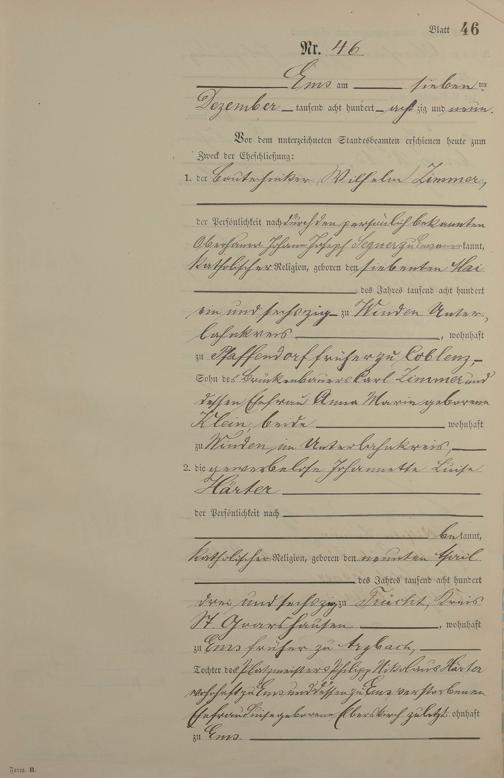 Blatt 46
Nr. 46
Ems am sieben ten
Dezember tausend acht hundert acht zig und neun.
Vor dem unterzeichneten Standesbeamten erschienen heute zum
Zweck der Eheschließung:
1. der Bautechniker Wilhelm Zimmer,
der Persönlichkeit nach durch den persönlich bekannten
Johann Joseph kannt,
katholischer Religion, geboren den siebenten Mai
des Jahres tausend acht hundert
ein und sechszig zu Winden Unter,
lahnkreis, wohnhaft
zu Pfaffendorf früher zu Coblenz
Sohn des Brückenbauers Carl Zimmer und
dessen Ehefrau Anna Maria geborene
Klein, beide wohnhaft
zu Winden, im Unterlahnkreis,
2. die gewerbelose Johannette Luise
Härter
der Persönlichkeit nach
be kannt,
katholischer Religion, geboren den neunten April
des Jahres tausend acht hundert
drei und sechszig zu Frücht, Kreis
St Goarshausen, wohnhaft
zu Ems früher zu Arzbach,
Tochter des Platzmeisters Philipp Nikolaus Härter
wohnhaft zu Ems und dessen zu Ems verstorbenen
Ehefrau Luise geborene zuletzt wohnhaft
zu Ems.
Form. B.